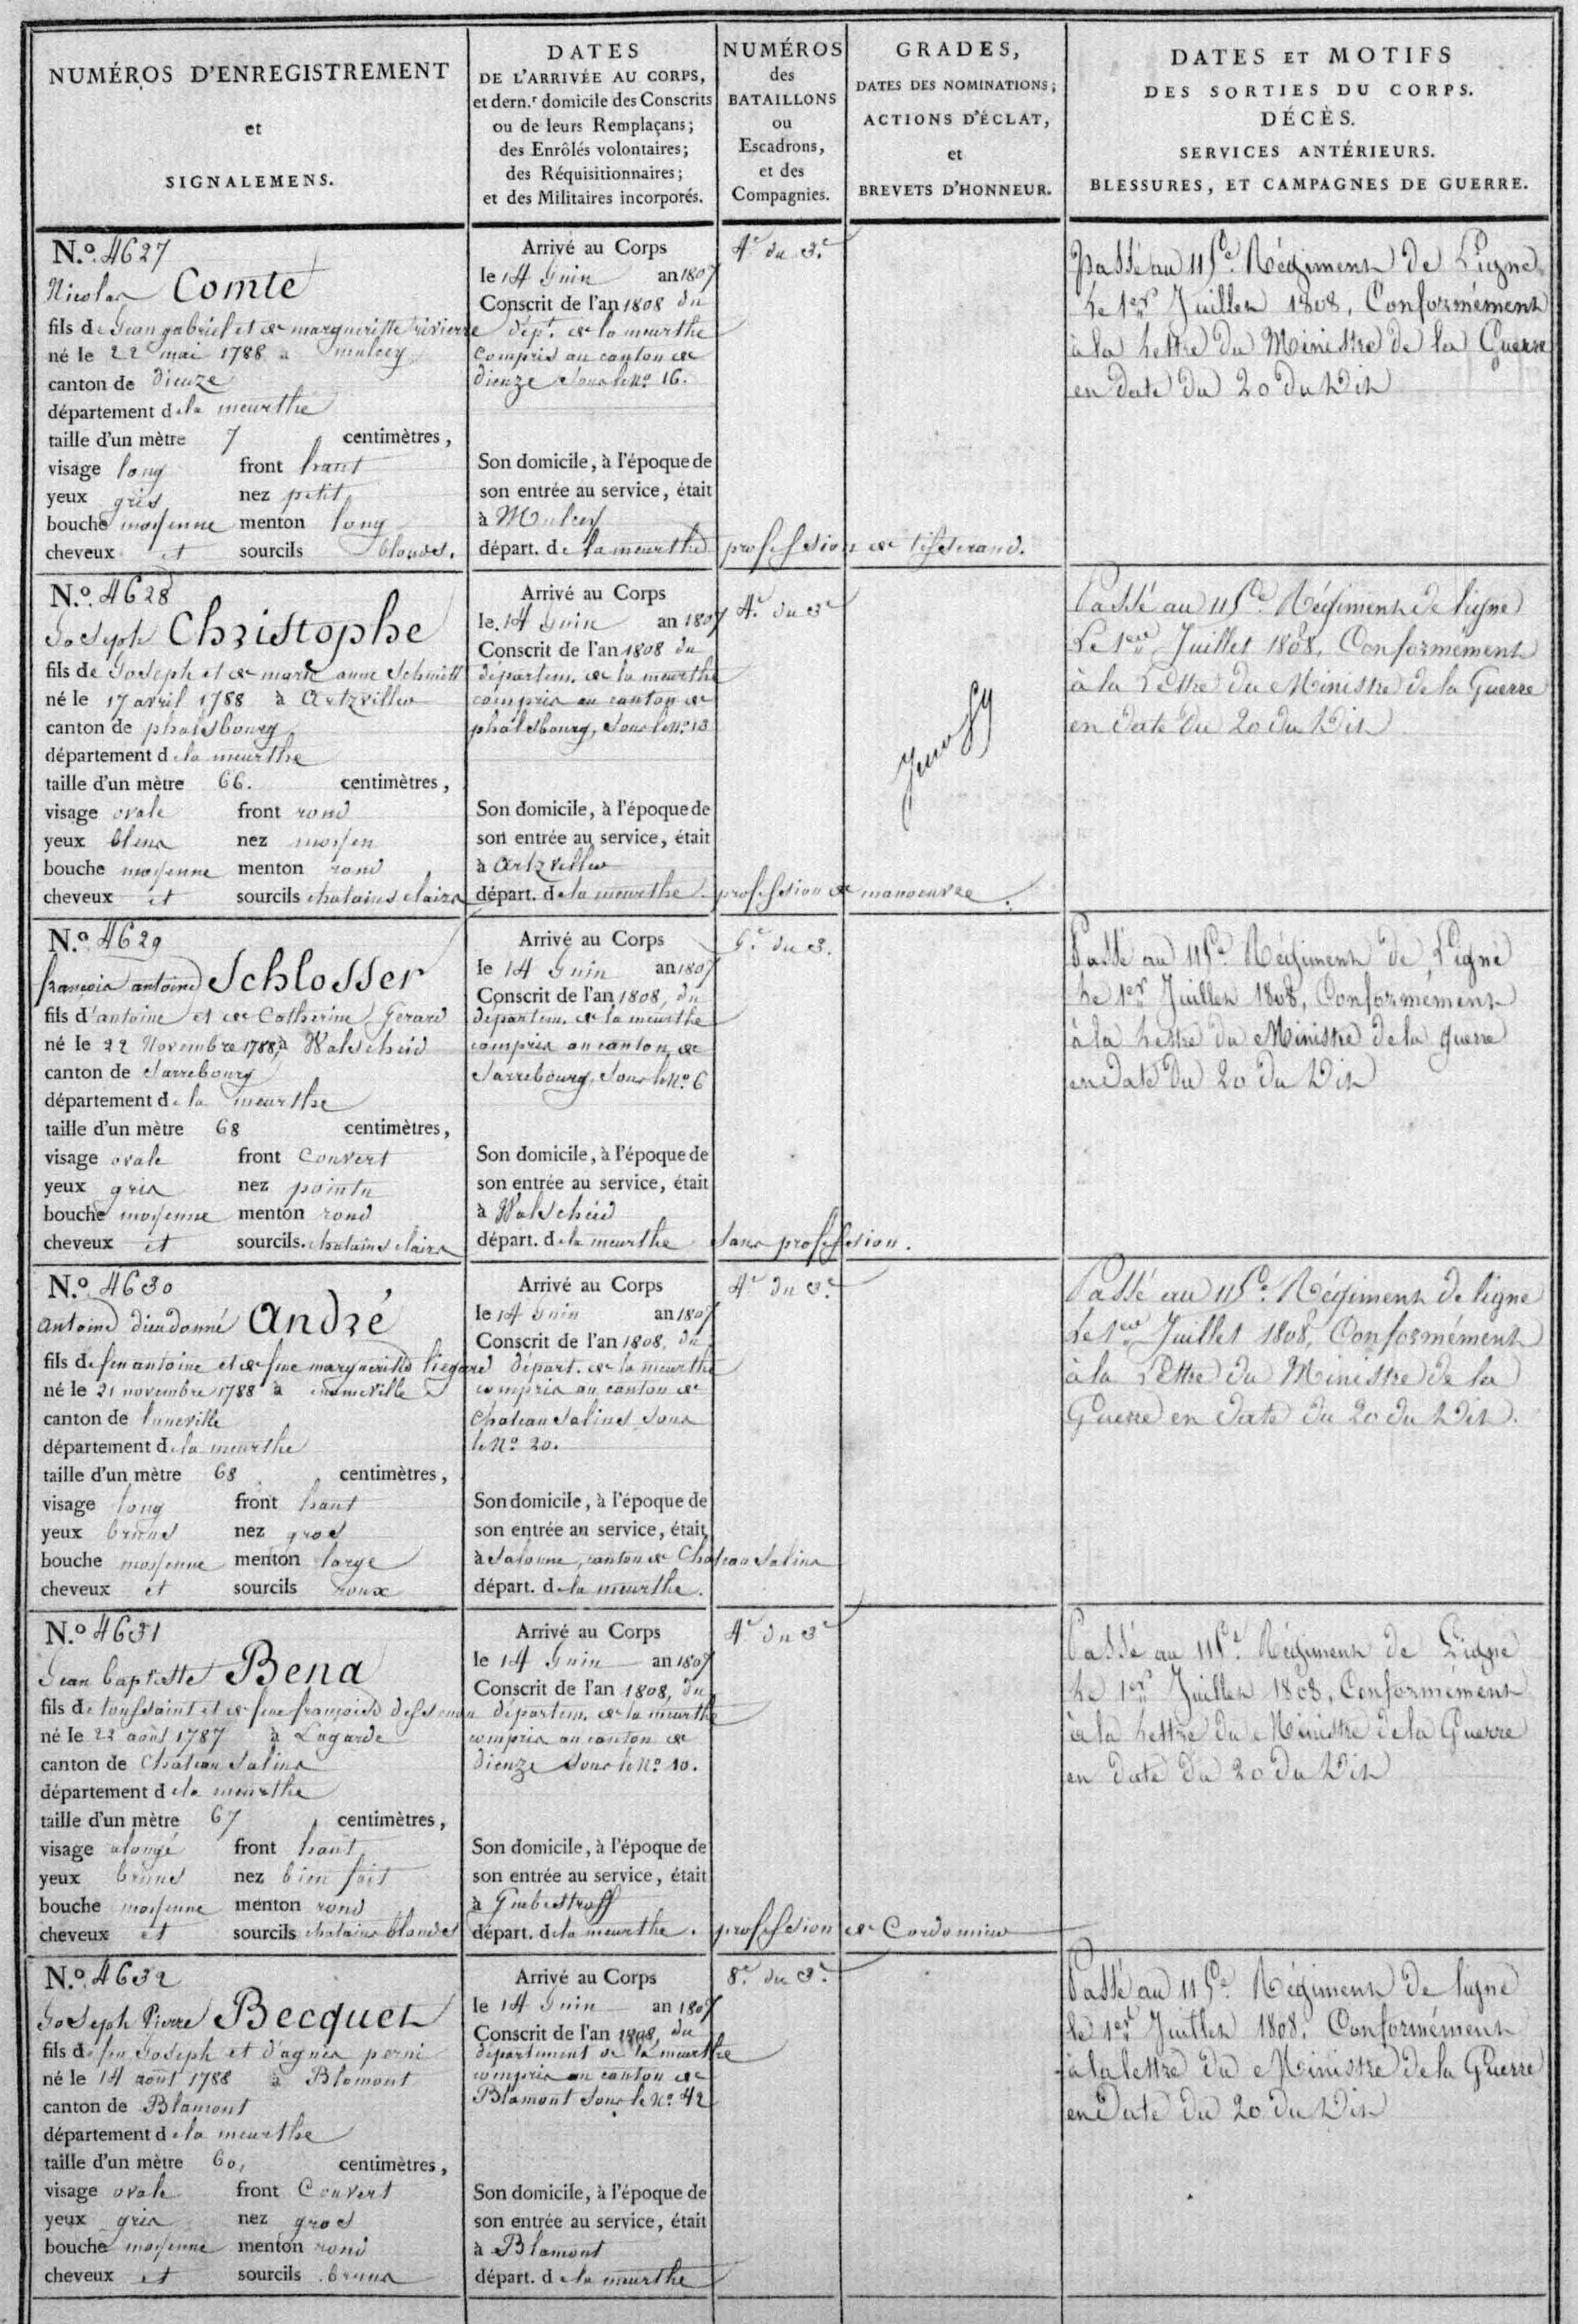 NUMÉROS D'ENREGISTREMENT
et
SIGNALEMENS.
DATES
DE L'ARRIVÉE AU CORPS,
et dern.r domicile des Conscrits
ou de leurs Remplaçans;
des Enrôlés volontaires;
des Réquisitionnaires;
et des Militaires incorporés.
NUMÉROS
des
BATAILLONS
ou
Escadrons,
et des
Compagnies.
GRADES,
DATES DES NOMINATIONS;
ACTIONS D'ÉCLAT,
et
BREVETS D'HONNEUR.
DATES ET MOTIFS
DES SORTIES DU CORPS.
DÉCÈS.
SERVICES ANTÉRIEURS.
BLESSURES, ET CAMPAGNES DE GUERRE.
N.o 4627
Nicolas Comte
fils de Jean gabriel et de margueritte rivierre
né le 22 mai 1788 à mulcey
canton de Dieuze
département de la meurthe
taille d'un mètre 7 centimètres,
visage long front haut
yeux gris nez petit
bouche moyenne menton long
cheveux et sourcils blonds.
Arrivé au Corps
le 14 Juin an 1807
Conscrit de l'an 1808 du
dépt. de la meurthe
compris au canton de
dieuze sous le No. 16.
Son domicile, à l'époque de
son entrée au service, était
à Mulcey
départ. de la meurthe profession de tisserand.
4e du 3e
Passé au 115e Régiment de Ligne
Le 1er Juillet 1808, Conformément
à la Lettre du Ministre de la Guerre
en date du 20 du dit
N.o 4628
Joseph Christophe
fils de Joseph et de marie anne Schmitt
né le 17 avril 1788 à Artzviller
canton de phalsbourg
département de la meurthe
taille d'un mètre 66. centimètres,
visage ovale front rond
yeux bleus nez moyen
bouche moyenne menton rond
cheveux et sourcils chatains clairs
Arrivé au Corps
le 14 Juin an 1807
Conscrit de l'an 1808 du
départem. de la meurthe
compris au canton de
phalsbourg, sous le No. 13
Son domicile, à l'époque de
son entrée au service, était
à Artzviller
départ. de la meurthe profession de manoeuvre.
4e du 3e
Passé au 115e Régiment de ligne
Le 1er Juillet 1808, Conformément
à la Lettre du Ministre de la Guerre
en date du 20 du dit
N.o 4629
françois antoine Schlosser
fils d'antoine et de Catherine Gerard
né le 22 Novembre 1788, à Walscheid
canton de Sarrebourg
département de la meurthe
taille d'un mètre 68 centimètres,
visage ovale front Couvert
yeux gris nez pointu
bouche moyenne menton rond
cheveux et sourcils chatains clairs
Arrivé au Corps
le 14 Juin an 1807
Conscrit de l'an 1808, du
départem. de la meurthe
compris au canton de
Sarrebourg, Sous le No. 6
Son domicile, à l'époque de
son entrée au service, était
à Walscheid
départ. de la meurthe sans profession.
du 3.
Passé au 115e Régiment de Ligne
Le 1er Juillet 1808, Conformément
à la Lettre du Ministre de la guerre
en date du 20 du dit
N.o 4630
Antoine dieudonné André
fils de feu antoine et de feue margueritte liegard
né le 21 novembre 1788 à
canton de luneville
département de la meurthe
taille d'un mètre 68 centimètres,
visage long front haut
yeux bruns nez gros
bouche moyenne menton large
cheveux et sourcils roux
Arrivé au Corps
le 14 Juin an 1807
Conscrit de l'an 1808, du
départ. de la meurthe
compris au canton de
Chateau Salins sous
le No. 20.
Son domicile, à l'époque de
son entrée au service, était
à Salonne, canton de Chateau Salins
départ. de la meurthe.
4e du 3e
Passé au 115e Régiment de ligne
Le 1er Juillet 1808, Conformément
à la Lettre du Ministre de la
Guerre en date du 20 du dit.
N.o 4631
Jean baptiste Bena
fils de toussaint et de feue françoise
né le 22 août 1787 à Lagarde
canton de Chateau Salins
département de la meurthe
taille d'un mètre 67 centimètres,
visage alongé front haut
yeux bruns nez bien fait
bouche moyenne menton rond
cheveux et sourcils chatains blonds
Arrivé au Corps
le 14 Juin an 1807
Conscrit de l'an 1808, du
départem. de la meurthe
compris au canton de
dieuze sous le No. 10.
Son domicile, à l'époque de
son entrée au service, était
à Guebestroff
départ. de la meurthe. profession de Cordonnier
4e du 3e
Passé au 115e Régiment de Ligne
Le 1er Juillet 1808, Conformément
à la Lettre du Ministre de la Guerre
en date du 20 du dit
N.o 4632
Joseph Pierre Becquet
fils de feu Joseph et d'agnes perni
né le 14 août 1788 à Blamont
canton de Blamont
département de la meurthe
taille d'un mètre 60, centimètres,
visage ovale front Couvert
yeux gris nez gros
bouche moyenne menton rond
cheveux et sourcils bruns
Arrivé au Corps
le 14 Juin an 1807
Conscrit de l'an 1808, du
département de la meurthe
compris au canton de
Blamont sous le No. 42
Son domicile, à l'époque de
son entrée au service, était
à Blamont
départ. de la meurthe
8e du 3e
Passé au 115e Régiment de ligne
le 1er Juillet 1808. Conformément
à la lettre du Ministre de la Guerre
en date du 20 du dit